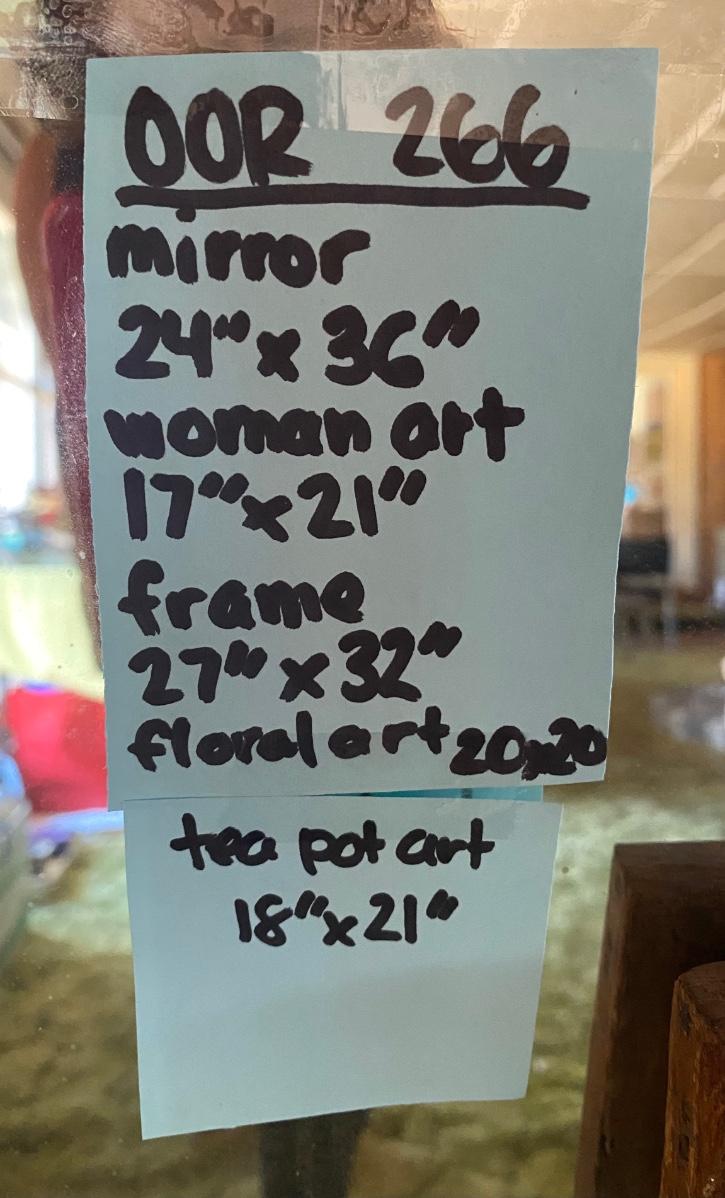 OOR 266
mirror
24" x 36"
woman art
17" x 21"
frame
27" x 32"
floral art 20x20
tea pot art
18" x 21"